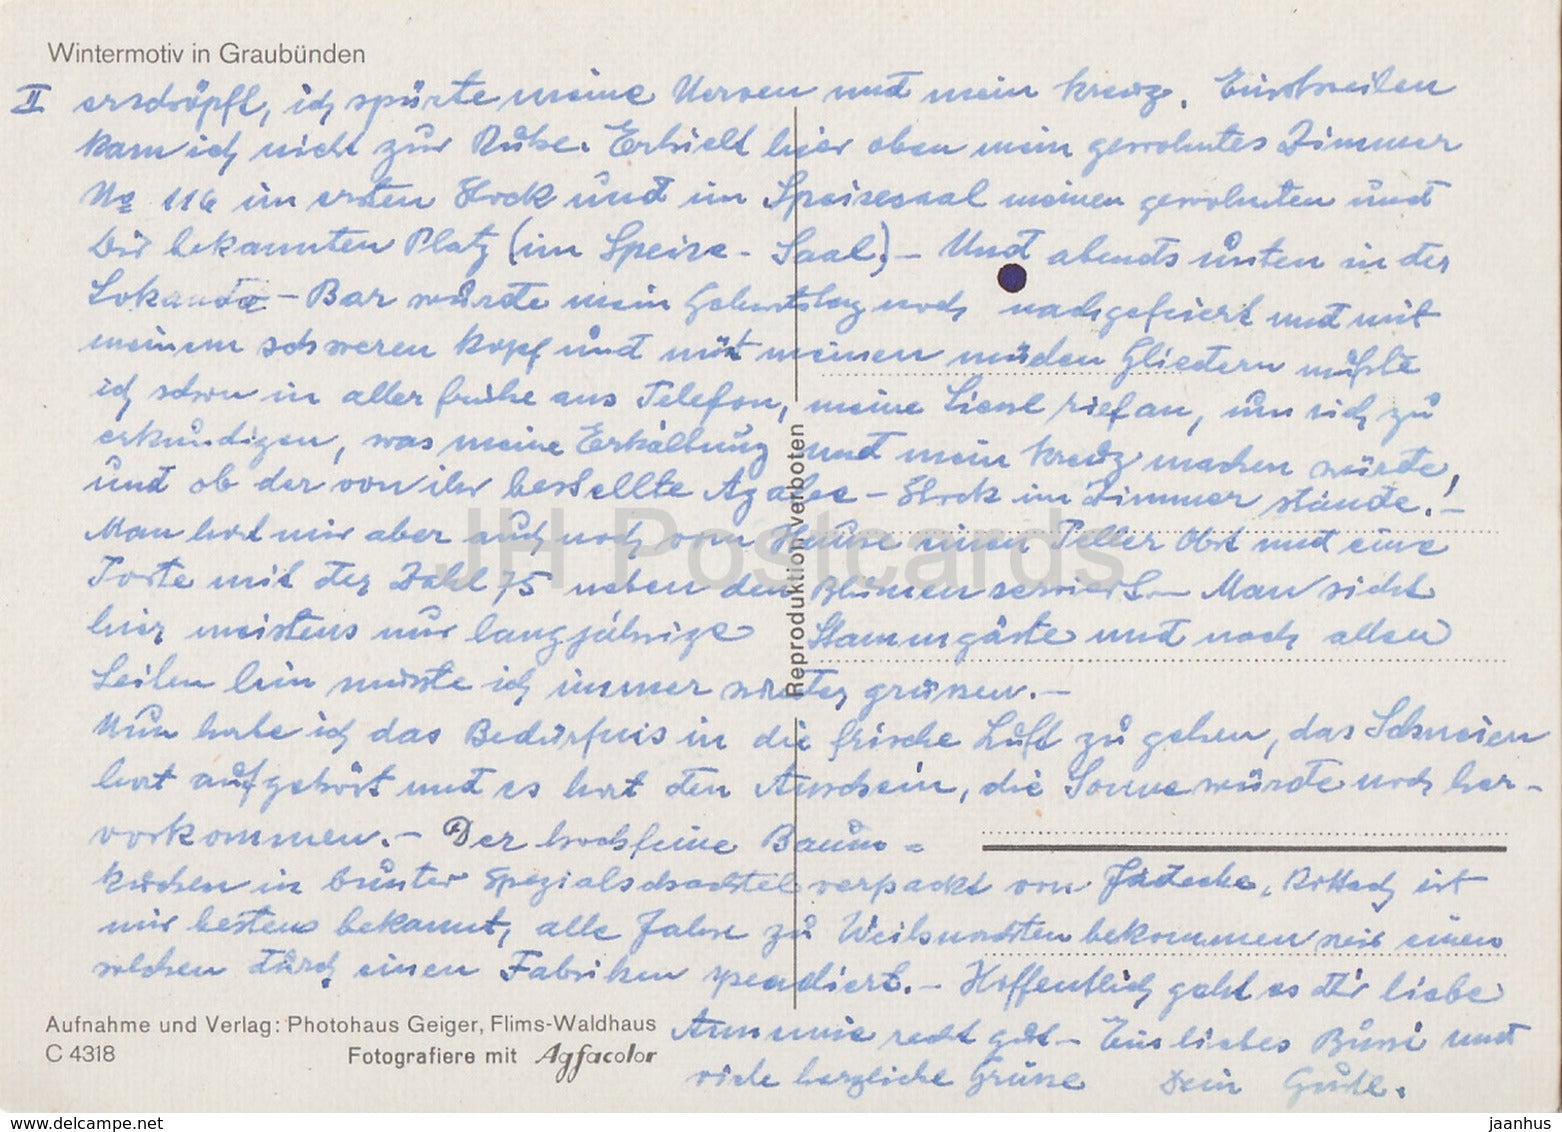 Wintermotiv in Graubünden
II erschöpft, ich spürte meine Nerven und mein Kreuz. Einstweilen
kam ich nicht zur Ruhe. Erhielt hier oben mein gewohntes Zimmer
No 116 im ersten Stock und im Speisesaal meinen gewohnten und
Dir bekannten Platz (im Speise-Saal) – Und abends unten in der
Lokanda – Bar wurde mein Geburtstag noch nachgefeiert und mit
meinem schweren Kopf und mit meinen müden Gliedern mußte
ich schon in aller frühe ans Telefon, meine Liesl rief an, um sich zu
erkundigen, was meine Erkältung und mein Kreuz machen würde,
und ob der von ihr bestellte Stock im Zimmer stände! –
Man hat mir aber auch noch vom Hause einen Teller Obst und eine
Torte mit der Zahl 75 neben den Blumen serviert – Man sieht
hier meistens nur langjährige Stammgäste und nach allen
Seiten hin musste ich immer wieder grüssen. –
Nun habe ich das Bedürfnis in die frische Luft zu gehen, das Schneien
hat aufgehört und es hat den Anschein, die Sonne würde noch her-
vorkommen. – Der hochfeine Baum=
kuchen in bunter Spezialschachtel verpackt von Rottach ist
mir bestens bekannt, alle Jahre zu Weihnachten bekommen wir einen
solchen durch einen Fabriken spendiert. – Hoffentlich geht es Dir liebe
Annemie recht gut – Ein liebes Bussi und
viele herzliche Grüsse Dein Gustl.
Reproduktion verboten
Aufnahme und Verlag: Photohaus Geiger, Flims-Waldhaus
C 4318 Fotografiere mit Agfacolor
JH Postcards
www.delcampe.net
jaanhus